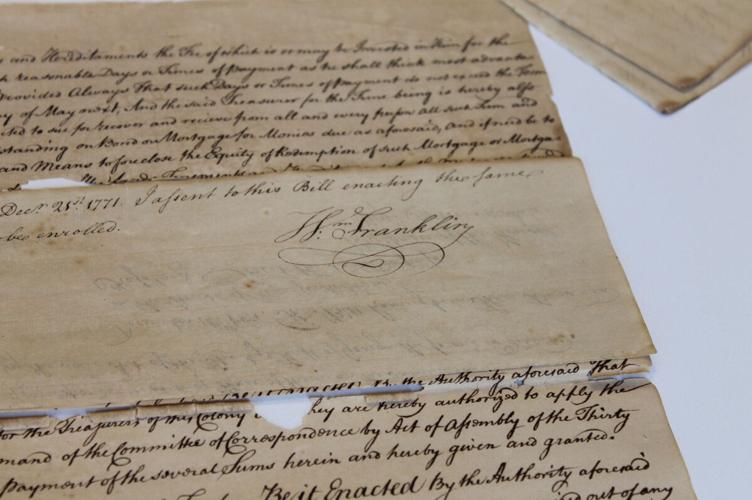 and Hereditaments the Fee of which is or may be Invested in Him for the
reasonable Days or Times of payment as he shall think most advanta-
Provided Always That such Days or Times of payment do not exceed the Term
of May next, And the said Treasurer for the Time being is hereby also
to sue for recover and recieve from all and every person all such Sum and
standing on Bond or Mortgage for Monies due as aforesaid, and if need be to
and Means to foreclose the Equity of Redemption of such Mortgage or Mortga-
Decr. 21st. 1771. I assent to this Bill enacting the same
be enrolled.
Wm. Franklin
the Authority aforesaid That
for the Treasurers of this Colony they are hereby authorized to apply the
mand of the Committee of Correspondence by Act of Assembly of the Thirty
payment of the several Sums herein and hereby given and granted.
Be it Enacted By the Authority aforesaid
out of any